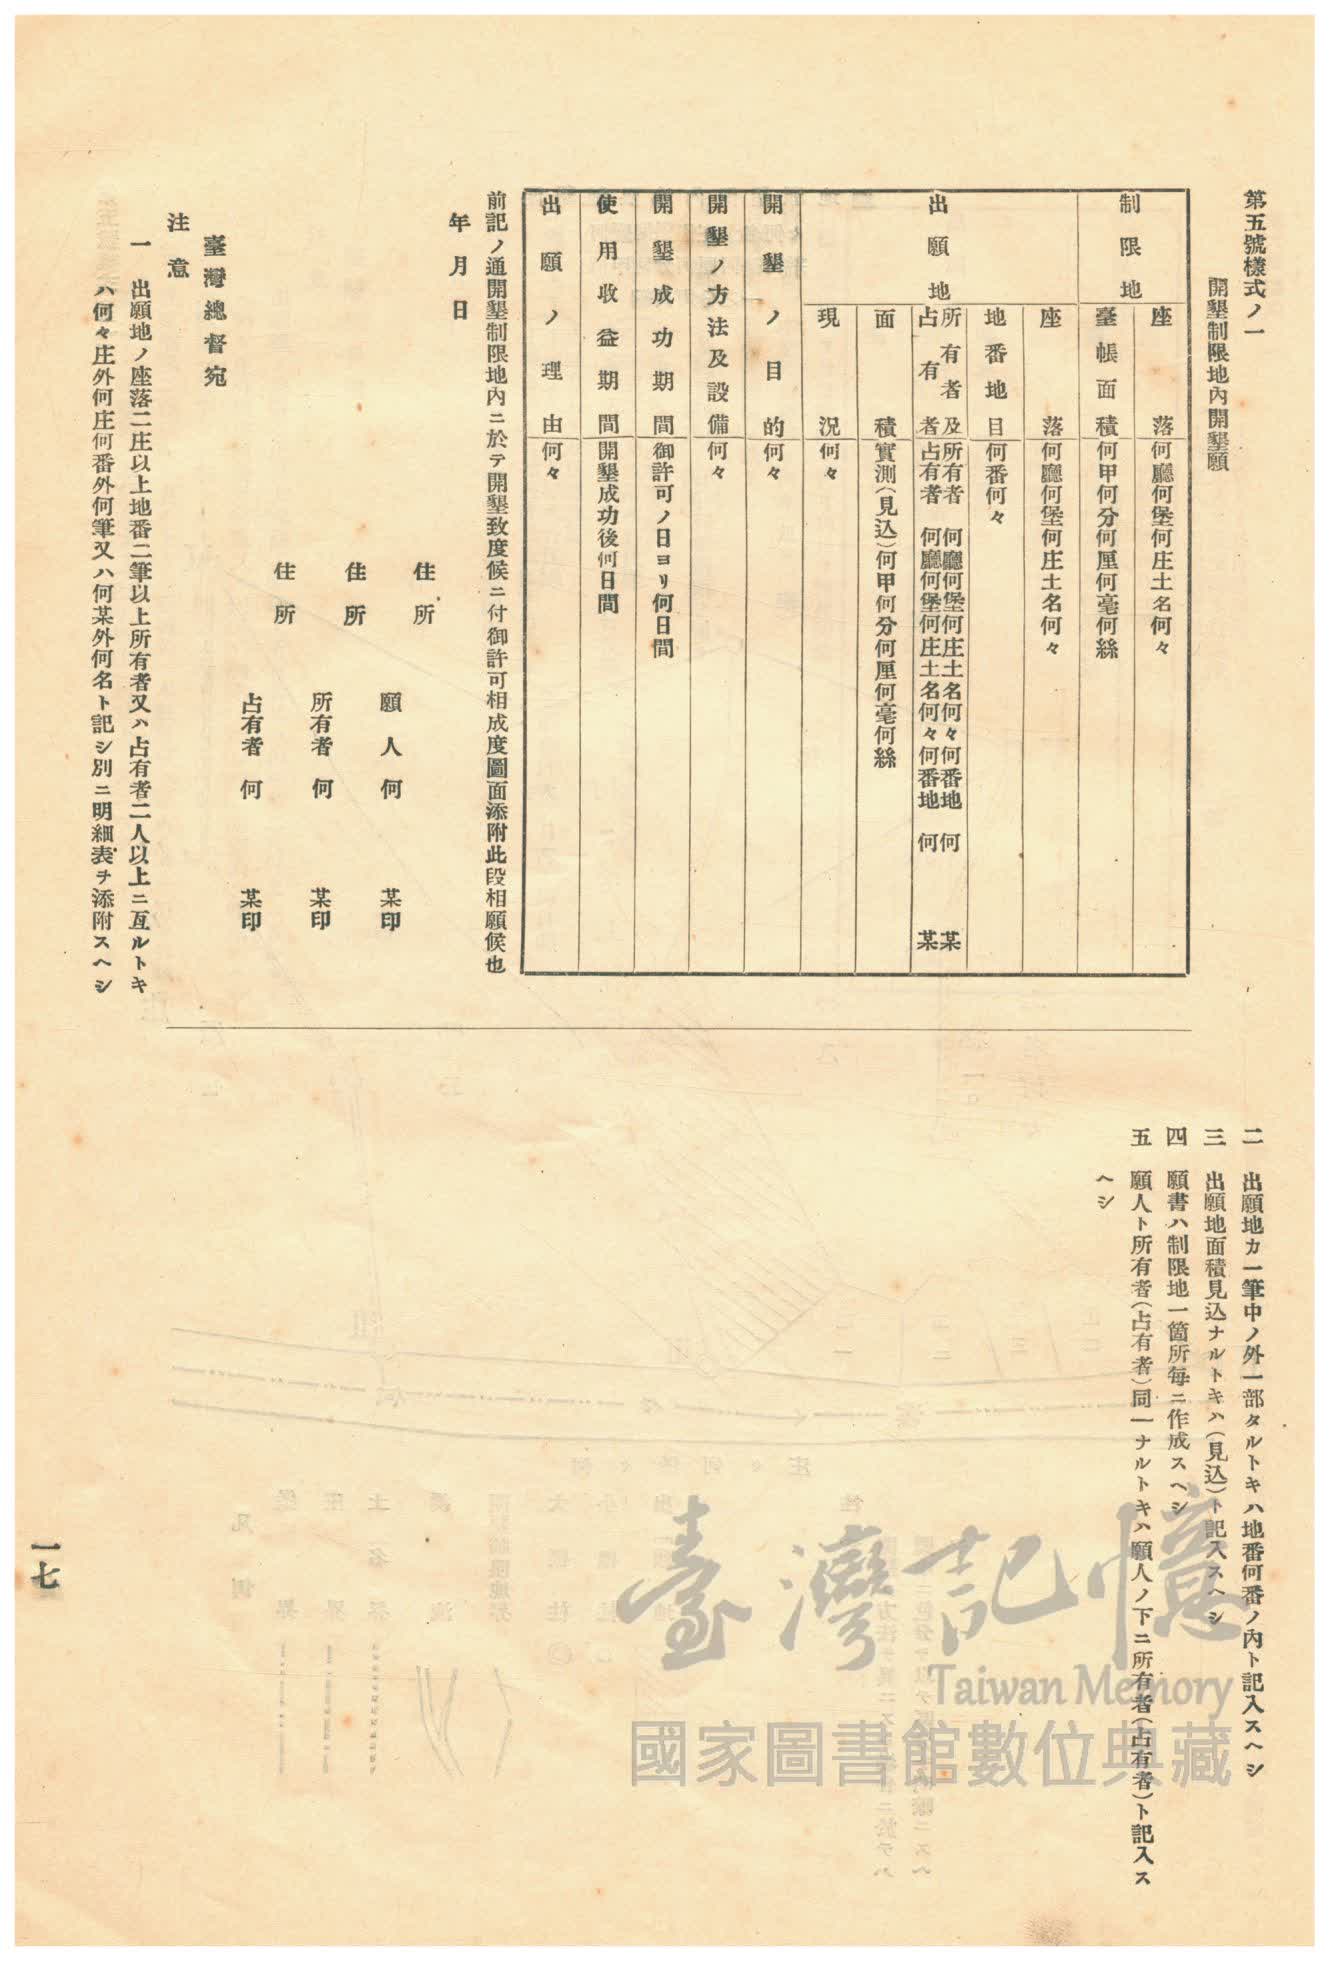 第五號樣式ノ一
開墾制限地內開墾願
制限地
座落 何廳何堡何庄土名何々
臺帳面積 何甲何分何厘何毫何絲
出願地
座落 何廳何堡何庄土名何々
地番地目 何番何々
所有者及 所有者 何廳何堡何庄土名何々何番地 何某
占有者 占有者 何廳何堡何庄土名何々何番地 何某
面積 實測(見込)何甲何分何厘何毫何絲
現況 何々
開墾ノ目的 何々
開墾ノ方法及設備 何々
開墾成功期間 御許可ノ日ヨリ何日間
使用收益期間 開墾成功後何日間
出願ノ理由 何々
前記ノ通開墾制限地內ニ於テ開墾致度候ニ付御許可相成度圖面添附此段相願候也
年月日
住所
願人 何某印
住所
所有者 何某印
住所
占有者 何某印
臺灣總督宛
注意
一 出願地ノ座落二庄以上地番二筆以上所有者又ハ占有者二人以上ニ亙ルトキ
ハ何々庄外何庄何番外何筆又ハ何某外何名ト記シ別ニ明細表ヲ添附スヘシ
二 出願地カ一筆中ノ外一部タルトキハ地番何番ノ內ト記入スヘシ
三 出願地面積見込ナルトキハ(見込)ト記入スヘシ
四 願書ハ制限地一箇所每ニ作成スヘシ
五 願人ト所有者(占有者)同一ナルトキハ願人ノ下ニ所有者(占有者)ト記入ス
ヘシ
一七
臺灣記憶
Taiwan Memory
國家圖書館數位典藏